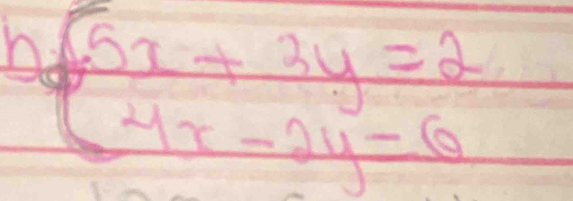 h. { 5x + 3y = 2
4x - 2y = 6